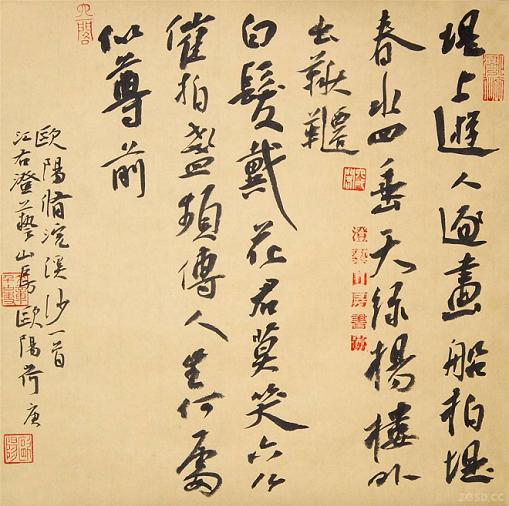 堤上遊人逐畫船拍堤
春水四垂天綠楊樓外
出鞦韆
白髮戴花君莫笑六么
催拍盞頻傳人生何處
似尊前
歐陽脩浣溪沙一首
江右澄藝山房歐陽荷庚
ZGSD.CC